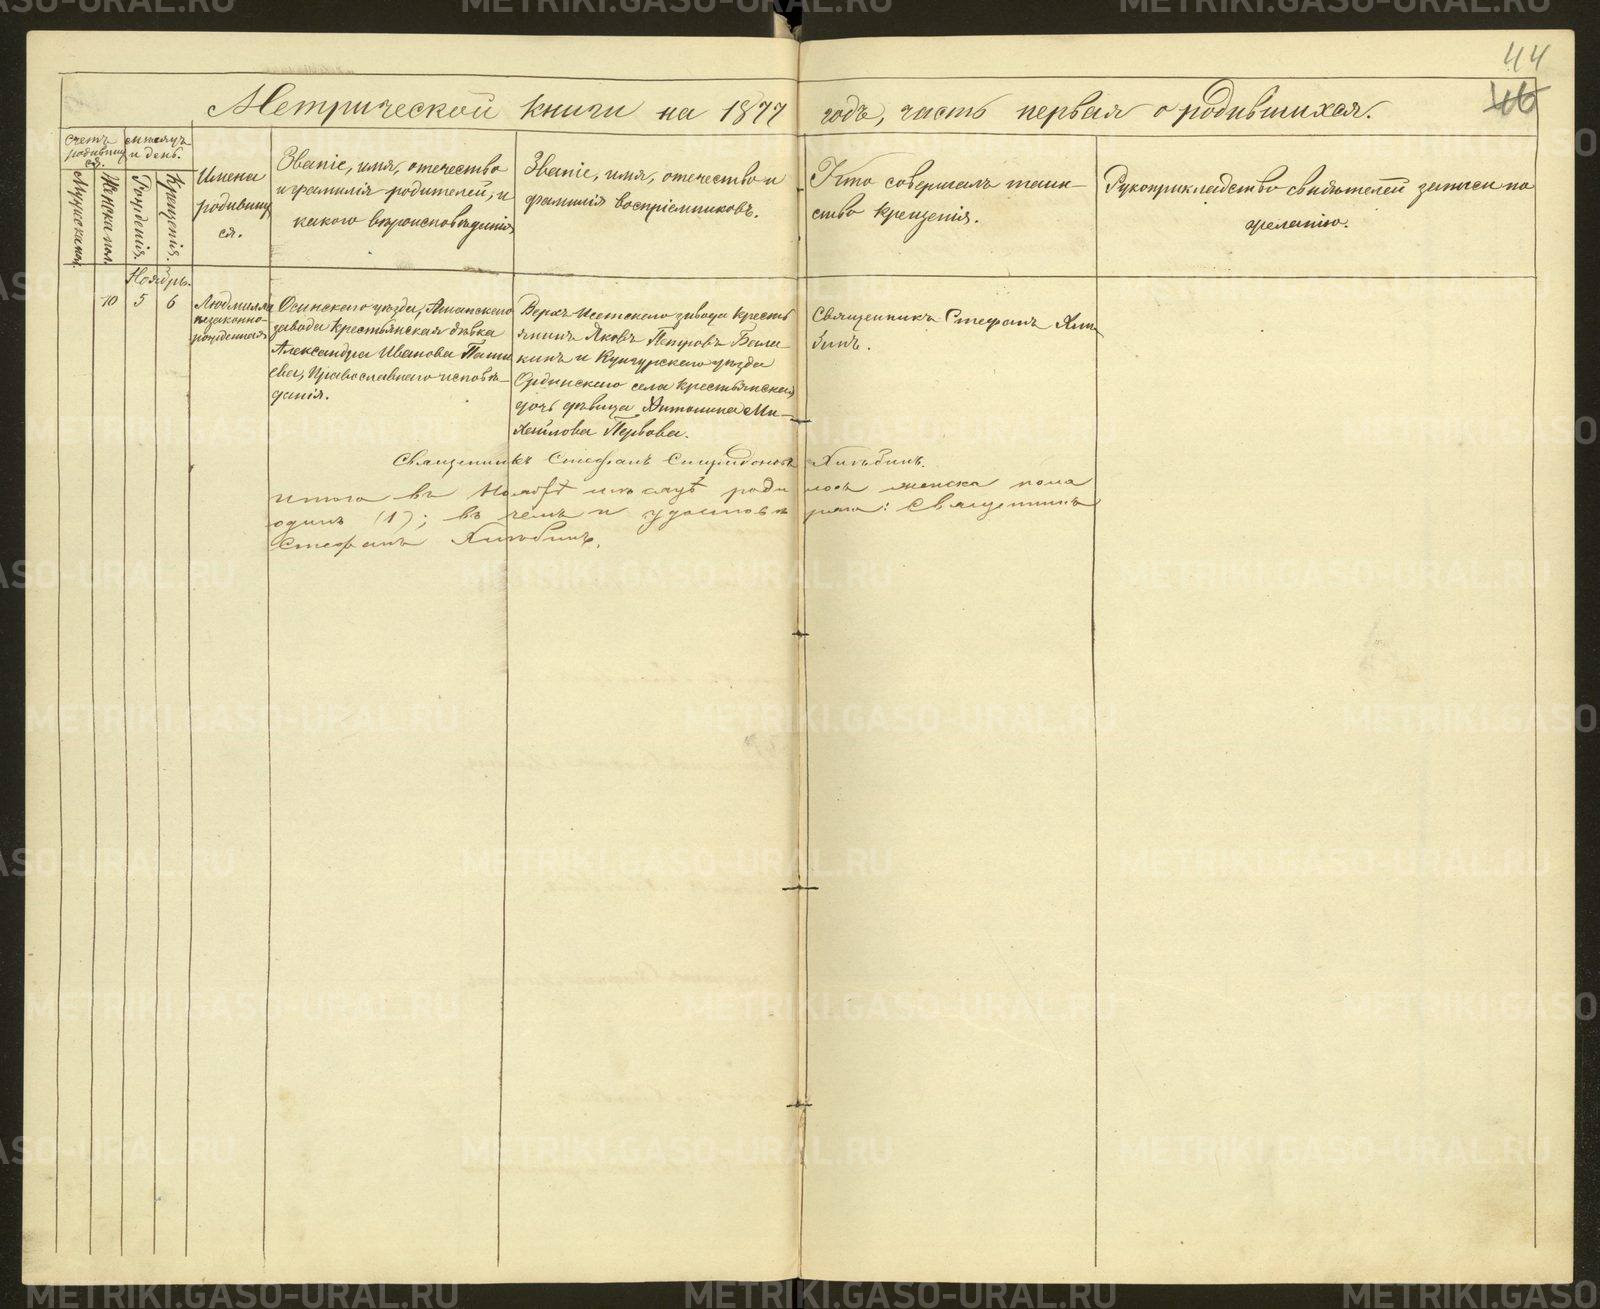 44
46
Метрической книги на 1877 годъ, часть первая о родившихся.
Счетъ родившихся.
Мѣсяцъ и день.
Мужска пол.
Женска пол.
Рожденія.
Крещенія.
Имена
родивших
ся.
Званіе, имя, отечество
и фамилія родителей, и
какого вѣроисповѣданія
Званіе, имя, отечество и
фамилія воспріемниковъ.
Кто совершалъ таин-
ство крещенія.
Рукоприкладство свидѣтелей записи по
желанію.
Ноябрь.
10
5
6
Людмилла
незаконно-
рожденная
Осинскаго уѣзда, Ашапскаго
завода Крестьянская дѣвка
Александра Иванова
Православнаго исповѣ-
данія.
Верхъ Исетскаго завода Кресть
янинъ Яковъ Петровъ Бала
кинъ и Кунгурскаго уѣзда
Ординскаго села Крестьянская
дочь дѣвица Антонина Ми-
хайлова Первова.
Священникъ Стефанъ Хлы
бинъ.
Священникъ Стефанъ Спиридоновъ Хлыбинъ.
итого въ Ноябрѣ мѣсяцѣ роди лось женска пола
одинъ (1); въ чемъ и удостовѣ ряю: Священникъ
Стефанъ Хлыбинъ.
METRIKI.GASO-URAL.RU